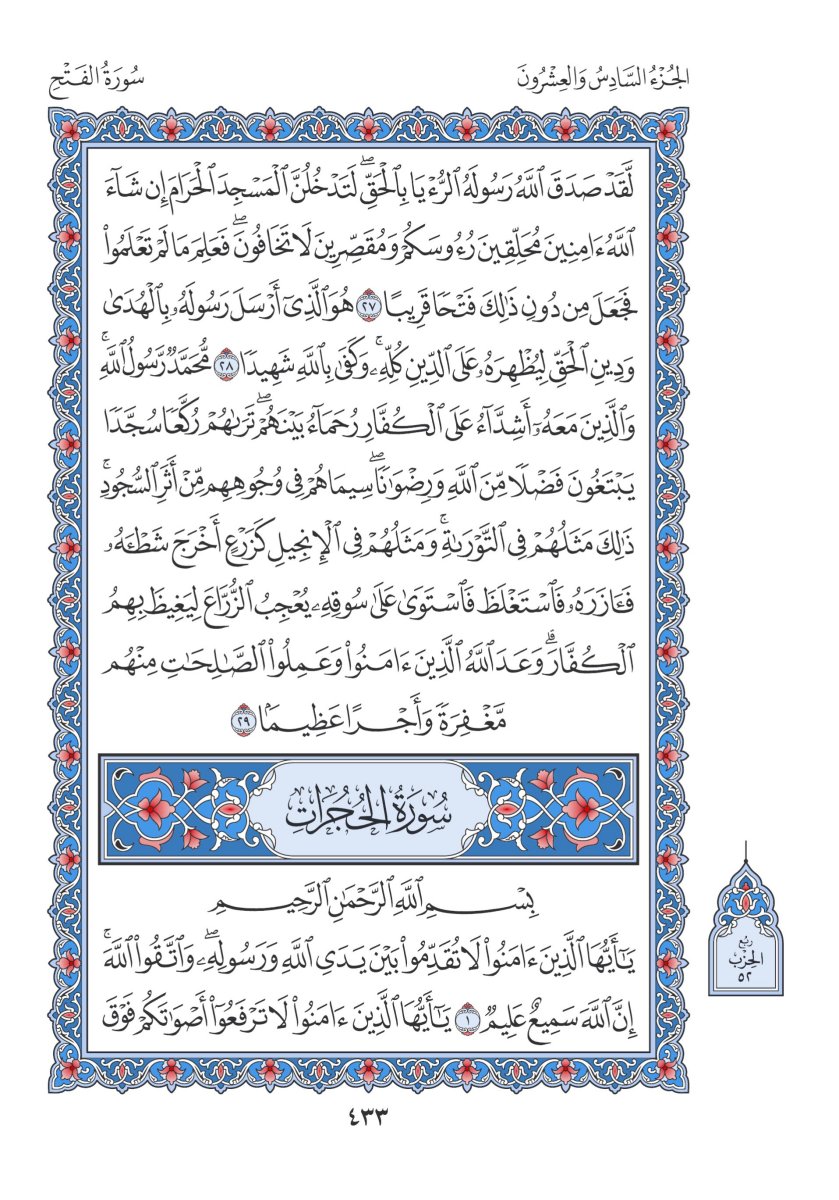 الجُزْءُ السَّادِسُ وَالعِشْرُونَ
سُورَةُ الفَتْحِ
لَّقَدْ صَدَقَ ٱللَّهُ رَسُولَهُ ٱلرُّءْيَا بِٱلْحَقِّۖ لَتَدْخُلُنَّ ٱلْمَسْجِدَ ٱلْحَرَامَ إِن شَآءَ
ٱللَّهُ ءَامِنِينَ مُحَلِّقِينَ رُءُوسَكُمْ وَمُقَصِّرِينَ لَا تَخَافُونَۖ فَعَلِمَ مَا لَمْ تَعْلَمُوا۟
فَجَعَلَ مِن دُونِ ذَٰلِكَ فَتْحًا قَرِيبًا ٢٧ هُوَ ٱلَّذِىٓ أَرْسَلَ رَسُولَهُۥ بِٱلْهُدَىٰ
وَدِينِ ٱلْحَقِّ لِيُظْهِرَهُۥ عَلَى ٱلدِّينِ كُلِّهِۦۚ وَكَفَىٰ بِٱللَّهِ شَهِيدًا ٢٨ مُّحَمَّدٌ رَّسُولُ ٱللَّهِۚ
وَٱلَّذِينَ مَعَهُۥٓ أَشِدَّآءُ عَلَى ٱلْكُفَّارِ رُحَمَآءُ بَيْنَهُمْۖ تَرَىٰهُمْ رُكَّعًا سُجَّدًا
يَبْتَغُونَ فَضْلًا مِّنَ ٱللَّهِ وَرِضْوَٰنًاۖ سِيمَاهُمْ فِى وُجُوهِهِم مِّنْ أَثَرِ ٱلسُّجُودِۚ
ذَٰلِكَ مَثَلُهُمْ فِى ٱلتَّوْرَىٰةِۚ وَمَثَلُهُمْ فِى ٱلْإِنجِيلِ كَزَرْعٍ أَخْرَجَ شَطْـَٔهُۥ
فَـَٔازَرَهُۥ فَٱسْتَغْلَظَ فَٱسْتَوَىٰ عَلَىٰ سُوقِهِۦ يُعْجِبُ ٱلزُّرَّاعَ لِيَغِيظَ بِهِمُ
ٱلْكُفَّارَۗ وَعَدَ ٱللَّهُ ٱلَّذِينَ ءَامَنُوا۟ وَعَمِلُوا۟ ٱلصَّٰلِحَٰتِ مِنْهُم
مَّغْفِرَةً وَأَجْرًا عَظِيمًۢا ٢٩
سُورَةُ الحُجُرَاتِ
بِسْمِ ٱللَّهِ ٱلرَّحْمَٰنِ ٱلرَّحِيمِ
يَٰٓأَيُّهَا ٱلَّذِينَ ءَامَنُوا۟ لَا تُقَدِّمُوا۟ بَيْنَ يَدَىِ ٱللَّهِ وَرَسُولِهِۦۖ وَٱتَّقُوا۟ ٱللَّهَۚ
إِنَّ ٱللَّهَ سَمِيعٌ عَلِيمٌ ١ يَٰٓأَيُّهَا ٱلَّذِينَ ءَامَنُوا۟ لَا تَرْفَعُوٓا۟ أَصْوَٰتَكُمْ فَوْقَ
رُبْع
الحِزْب
٥٢
٤٣٣